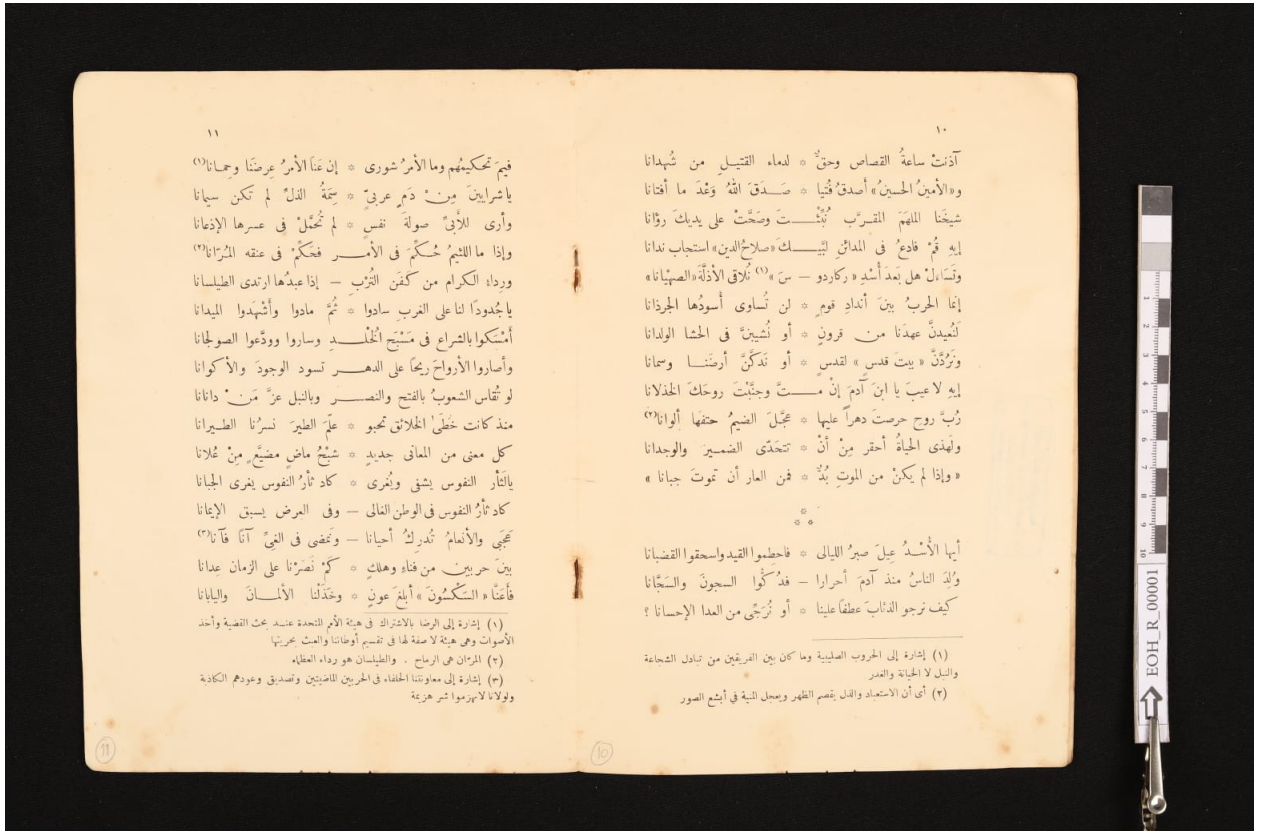 ١٠
آذنتْ ساعةُ القصاص وحقٌّ * لدماء القتيل من شُهدانا
و«الأمينُ الحسينُ» أصدقُ فُتيا * صَدَقَ اللهُ وَعْدَ ما أفتانا
شيخَنا الملهَمَ المقرَّب نُبِّئْتَ وصَحَّتْ على يديكَ رؤانا
إيهِ قُمْ فادعُ فى المدائنِ لبَّيْكَ «صلاحُ الدين» استجاب ندانا
وتَسَاءلْ هل بَعدَ أُسْدِ «ركاردو — س»(١) نُلاقى الأذلَّةَ «الصهْيانا»
إنما الحربُ بينَ أندادِ قومٍ * لن تُساوى أُسودُها الجرذانا
لَنُعيدنَّ عهدَنا من قرونٍ * أو نُشيبنَّ فى الحشا الولدانا
ونَرُدَّنَّ «بيتَ قدسٍ» لقدسٍ * أو نَدكَّنَّ أرضَنا وسمانا
إيهِ لا عيبَ يا ابنَ آدمَ إنْ متَّ وجنَّبْتَ روحَكَ الخذلانا
رُبَّ روحٍ حرصتَ دهراً عليها * عجَّلَ الضيمُ حتفَها ألوانا(٢)
ولهذى الحياةُ أحقر مِنْ أنْ * تتحَدّى الضميرَ والوجدانا
«وإذا لم يكنْ من الموتِ بُدٌّ * فمن العار أن تموتَ جبانا»
* * *
أيها الأُسْدُ عِيلَ صبرُ الليالى * فاحطِموا القيدَ واسحقوا القضبانا
وُلِدَ الناسُ منذ آدمَ أحرارا — فدُكُّوا السجونَ والسجَّانا
كيف نرجو الذئابَ عطفًا علينا * أو نُرَجِّى من العدا الإحسانا ؟
(١) إشارة إلى الحروب الصليبية وما كان بين الفريقين من تبادل الشجاعة
والنبل لا الخيانة والغدر
(٢) أى أن الاستعباد والذل يقصم الظهر ويعجل المنية في أبشع الصور
10
١١
فيمَ تحكيمُهم وما الأمرُ شورى * إن عَنَا الأمرُ عِرضَنَا وحِمانا(١)
يا شرايينَ مِنْ دَمٍ عربىٍّ * سِمَةُ الذلِّ لم تكن سيمانا
وأرى للأَبىِّ صولةَ نفسٍ * لم تُحمَّلْ فى عسرها الإذعانا
وإذا ما اللئيمُ حُكِّمَ فى الأمر فحَكِّمْ فى عنقه المُرّانا(٢)
ورداء الكرام من كَفَنِ التُرْبِ — إذا عبدُها ارتدى الطيلسانا
يا جُدودًا لنا على الغرب سادوا * ثُمَّ مادوا وأَشْهَدوا الميدانا
أَمْسَكوا بالشراع فى مَسْبَحِ الخُلْدِ وساروا وودَّعوا الصولجانا
وأصاروا الأرواحَ ريحًا على الدهر تسود الوجودَ والأكوانا
لو تُقاس الشعوبُ بالفتح والنصر وبالنبل عزَّ مَنْ دانانا
منذ كانت خُطَى الخلائق تحبو * علّمَ الطيرَ نسرُنا الطيرانا
كل معنى من المعانى جديدٍ * شبْحُ ماضٍ مضيَّعٍ مِنْ عُلانا
يالَثأر النفوس يشفى ويُغرى * كاد ثأرُ النفوس يغرى الجبانا
كاد ثأرُ النفوس فى الوطن الغالى — وفى العرض يسبق الإيمانا
عَجَبى والأنعامُ تُدركُ أحيانا — ونمضى فى الغىِّ آنًا فآنا(٣)
بينَ حربين من فناءٍ وهلكٍ * كَمْ نَصَرْنا على الزمان عِدانا
فأَعَنَّا «السَّكسُونَ» أبلغَ عونٍ * وخَذَلْنا الألمانَ واليابانا
(١) إشارة إلى الرضا بالاشتراك فى هيئة الأمم المتحدة عند بحث القضية وأخذ
الأصوات وهى هيئة لا صفة لها فى تقسيم أوطاننا والعبث بحريتها
(٢) المرّان هى الرماح . والطيلسان هو رداء العظماء
(٣) إشارة إلى معاونتنا الحلفاء فى الحربين الماضيتين وتصديق وعودهم الكاذبة
ولولانا لانهزموا شر هزيمة
11
1
2
3
4
5
6
7
8
9
10
EOH_R_00001